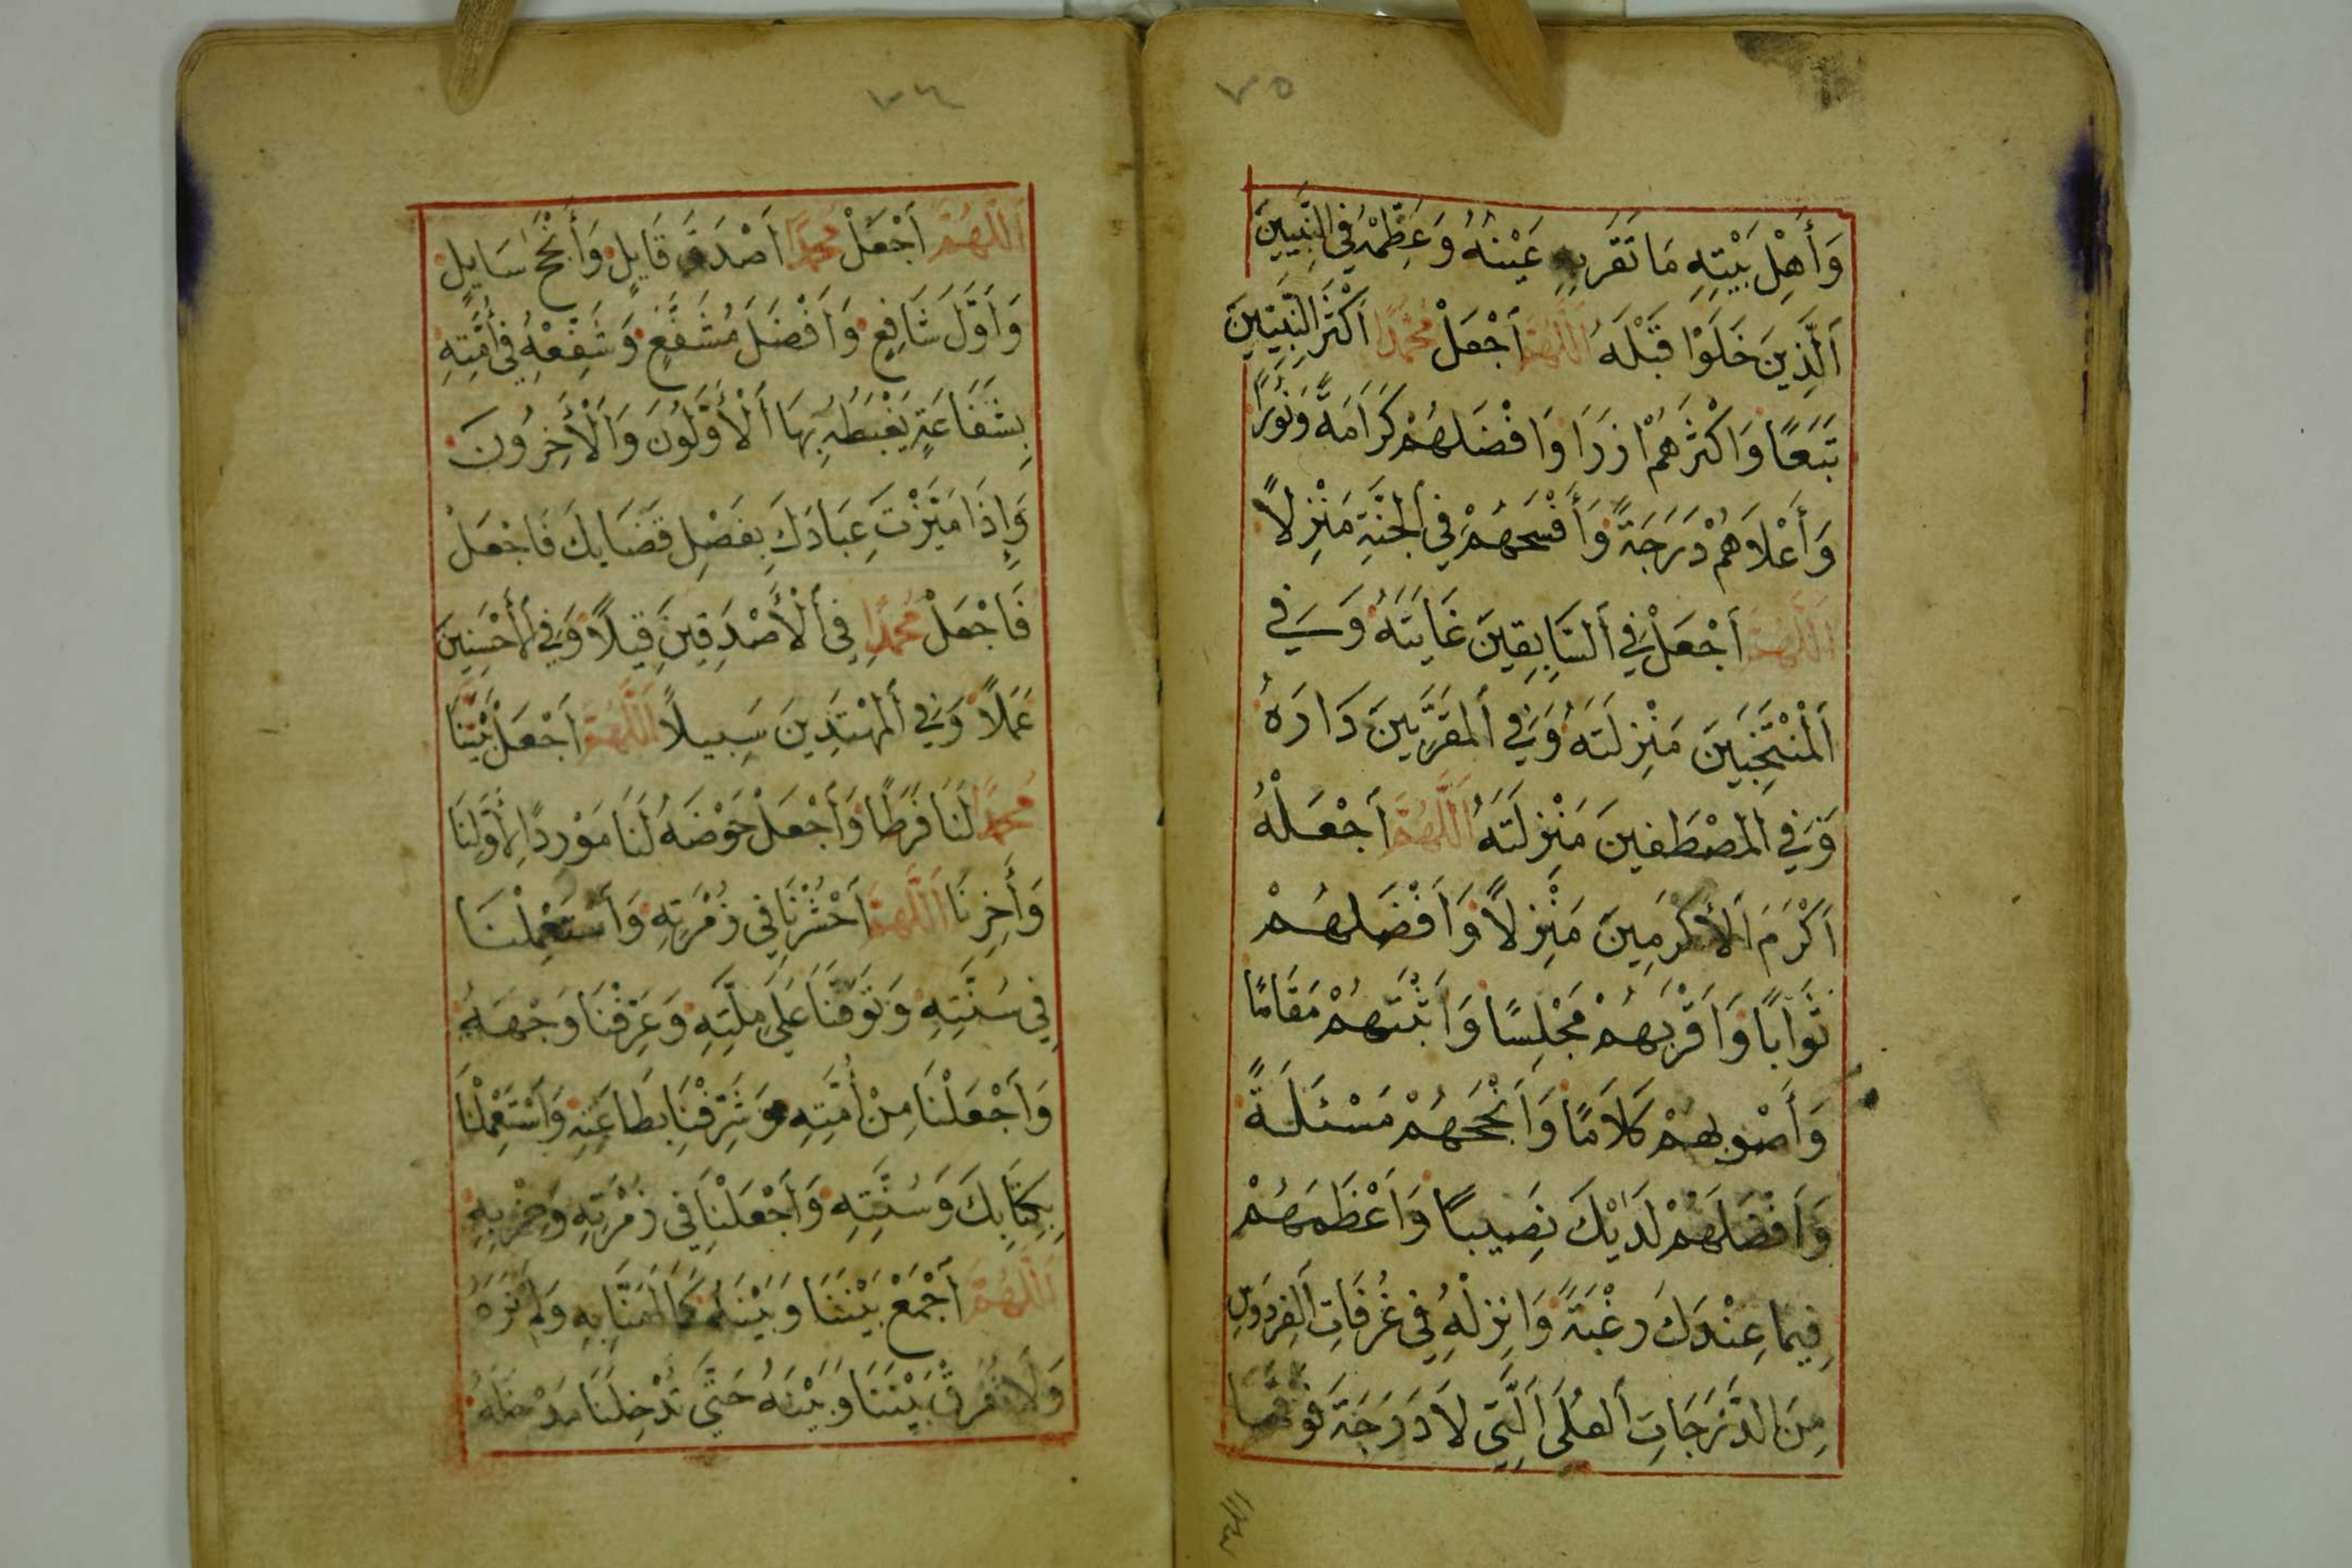 ٧٥
وَأَهْلِ بَيْتِهِ مَا تَقَرُّ بِهِ عَيْنُهُ وَعَظِّمْهُ فِي النَّبِيِّينَ
اَلَّذِينَ خَلَوْا قَبْلَهُ اَللَّهُمَّ اَجْعَلْ مُحَمَّدًا اَكْثَرَ النَّبِيِّينَ
تَبَعًا وَاَكْثَرَهُمْ اُزَرَا وَاَفْضَلَهُمْ كَرَامَةً وَنُورًا
وَأَعْلَاهُمْ دَرَجَةً وَأَفْسَحَهُمْ فِي الْجَنَّةِ مَنْزِلًا
اَللَّهُمَّ اَجْعَلْ فِي اَلسَّابِقِينَ غَايَتَهُ وَفِي
اَلْمُنْتَجَبِينَ مَنْزِلَتَهُ وَفِي اَلْمُقَرَّبِينَ دَارَهُ
وَفِي اَلْمُصْطَفَيْنَ مَنْزِلَتَهُ اَللَّهُمَّ اَجْعَلْهُ
اَكْرَمَ اَلْأَكْرَمِينَ مَنْزِلًا وَاَفْضَلَهُمْ
ثَوَابًا وَاَقْرَبَهُمْ مَجْلِسًا وَاَثْبَتَهُمْ مَقَامًا
وَأَصْوَبَهُمْ كَلَامًا وَاَنْجَحَهُمْ مَسْئَلَةً
وَاَفْضَلَهُمْ لَدَيْكَ نَصِيبًا وَاَعْظَمَهُمْ
فِيمَا عِنْدَكَ رَغْبَةً وَاَنْزِلْهُ فِي غُرُفَاتِ الْفِرْدَوْسِ
مِنَ الدَّرَجَاتِ اَلْعُلَى اَلَّتِي لَا دَرَجَةَ فَوْقَهَا
٧٦
اَللَّهُمَّ اَجْعَلْ مُحَمَّدًا اَصْدَقَ قَايِلٍ وَأَنْجَحَ سَايِلٍ
وَاَوَّلَ شَافِعٍ وَاَفْضَلَ مُشَفَّعٍ وَشَفِّعْهُ فِي أُمَّتِهِ
بِشَفَاعَةٍ يَغْبِطُهُ بِهَا اَلْأَوَّلُونَ وَاَلْأَخِرُونَ
وَإِذَا مَيَّزْتَ عِبَادَكَ بِفَصْلِ قَضَايِكَ فَاجْعَلْ
فَاجْعَلْ مُحَمَّدًا فِي اَلْأَصْدَقِينَ قِيلًا وَفِي اَلْأَحْسَنِينَ
عَمَلًا وَفِي اَلْمُهْتَدِينَ سَبِيلًا اَللَّهُمَّ اَجْعَلْ نَبِيَّنَا
مُحَمَّدًا لَنَا فَرَطًا وَاَجْعَلْ حَوْضَهُ لَنَا مَوْرِدًا لِأَوَّلِنَا
وَأَخِرِنَا اَللَّهُمَّ اَحْشُرْنَا فِي زُمْرَتِهِ وَاَسْتَعْمِلْنَا
فِي سُنَّتِهِ وَتَوَفَّنَا عَلَى مِلَّتِهِ وَعَرِّفْنَا وَجْهَهُ
وَاَجْعَلْنَا مِنْ أُمَّتِهِ وَشَرِّفْنَا بِطَاعَتِهِ وَاَسْتَعْمِلْنَا
بِكِتَابِكَ وَسُنَّتِهِ وَأَجْعَلْنَا فِي زُمْرَتِهِ وَحِزْبِهِ
اَللَّهُمَّ اَجْمَعْ بَيْنَنَا وَبَيْنَهُ كَمَا اَمَنَّا بِهِ وَلَمْ نَرَهُ
وَلَا تُفَرِّقْ بَيْنَنَا وَبَيْنَهُ حَتَّى تُدْخِلَنَا مَدْخَلَهُ